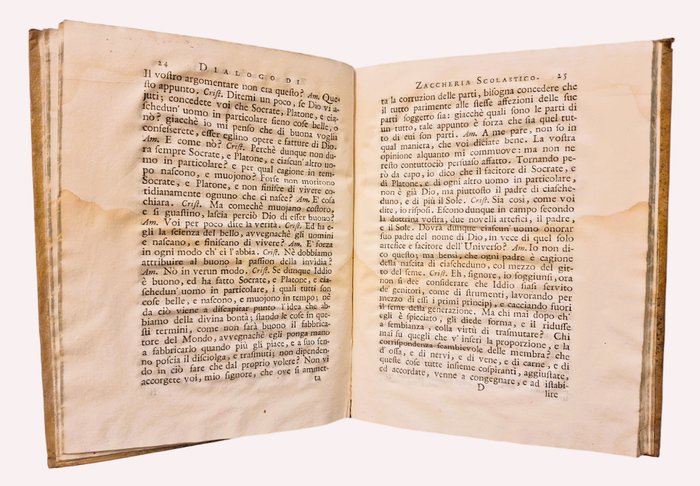 24 DIALOGO DI
Il vostro argomentare non era questo? Am. Que-
sto appunto. Crist. Ditemi un poco, se Dio vi a-
juti; concedete voi che Socrate, Platone, e cia-
schedun' uomo in particolare sieno cose belle, o
no? giacchè io mi penso che di buona voglia
confesserete, esser eglino opere e fatture di Dio.
Am. E come nò? Crist. Perchè dunque non du-
ra sempre Socrate, e Platone, e ciascun' altro uo-
mo in particolare? e per qual cagione in tem-
po nascono, e muojono? Forse non morirono
Socrate, e Platone, e non finisce di vivere co-
tidianamente ognuno che ci nasce? Am. E' cosa
chiara. Crist. Ma comechè muojano costoro,
e si guastino, lascia perciò Dio di esser buono?
Am. Voi per poco dite la verità. Crist. Ed ha e-
gli la scienza del bello, avvegnachè gli uomini
e nascano, e finiscano di vivere? Am. E' forza
in ogni modo ch' ei l'abbia. Crist. Nè dobbiamo
attribuire al buono la passion della invidia?
Am. Nò in verun modo. Crist. Se dunque Iddio
è buono, ed ha fatto Socrate, e Platone, e cia-
schedun' uomo in particolare, i quali tutti son
cose belle, e nascono, e muojono in tempo; nè
da ciò viene a discapitar punto l'idea che ab-
biamo della divina bontà; stando le cose in que-
sti termini, come non sarà buono il fabbrica-
tore del Mondo, avvegnachè egli ponga mano
a fabbricarlo quando più gli piace, e a suo sen-
no poscia il disciolga, e trasmuti; non dipenden-
do in ciò fare che dal proprio volere? Non vi
accorgete voi, mio signore, che ove si ammet-
ta
ZACCHERIA SCOLASTICO. 25
ta la corruzion delle parti, bisogna concedere che
il tutto parimente alle stesse affezioni delle sue
parti soggetto sia: giacchè quali sono le parti di
un tutto, tale appunto è forza che sia quel tut-
to di cui son parti. Am. A me pare, non so in
qual maniera, che voi diciate bene. La vostra
opinione alquanto mi commuove: ma non ne
resto contuttociò persuaso affatto. Tornando pe-
rò da capo, io dico che il facitore di Socrate, e
di Platone, e di ogni altro uomo in particolare,
non è già Dio, ma piuttosto il padre di ciasche-
duno, e di più il Sole. Crist. Sia così, come voi
dite, io risposi. Escono dunque in campo secondo
la dottrina vostra, due novelli artefici, il padre,
e il Sole. Dovrà dunque ciascun uomo onorar
suo padre del nome di Dio, in vece di quel solo
artefice e facitore dell'Universo? Am. Io non di-
co questo; ma bensì, che ogni padre è cagione
della nascita di ciascheduno, col mezzo del git-
to del seme. Crist. Eh, signore, io soggiunsi, ora
non si dee considerare che Iddio siasi servito
de' genitori, come di strumenti, lavorando per
mezzo di essi i primi principj, e cacciando fuori
il seme della generazione. Ma chi mai dopo ch'
egli è spicciato, gli diede forma, e il ridusse
a sembianza, colla virtù di trasmutare? Chi
mai su quegli che v'inserì la proporzione, e la
corrispondenza scambievole delle membra? che
d'ossa, e di nervi, e di vene, e di carne, e di
queste cose tutte insieme cospiranti, aggiustate,
ed accordate, venne a congegnare, e ad istabi-
D lire